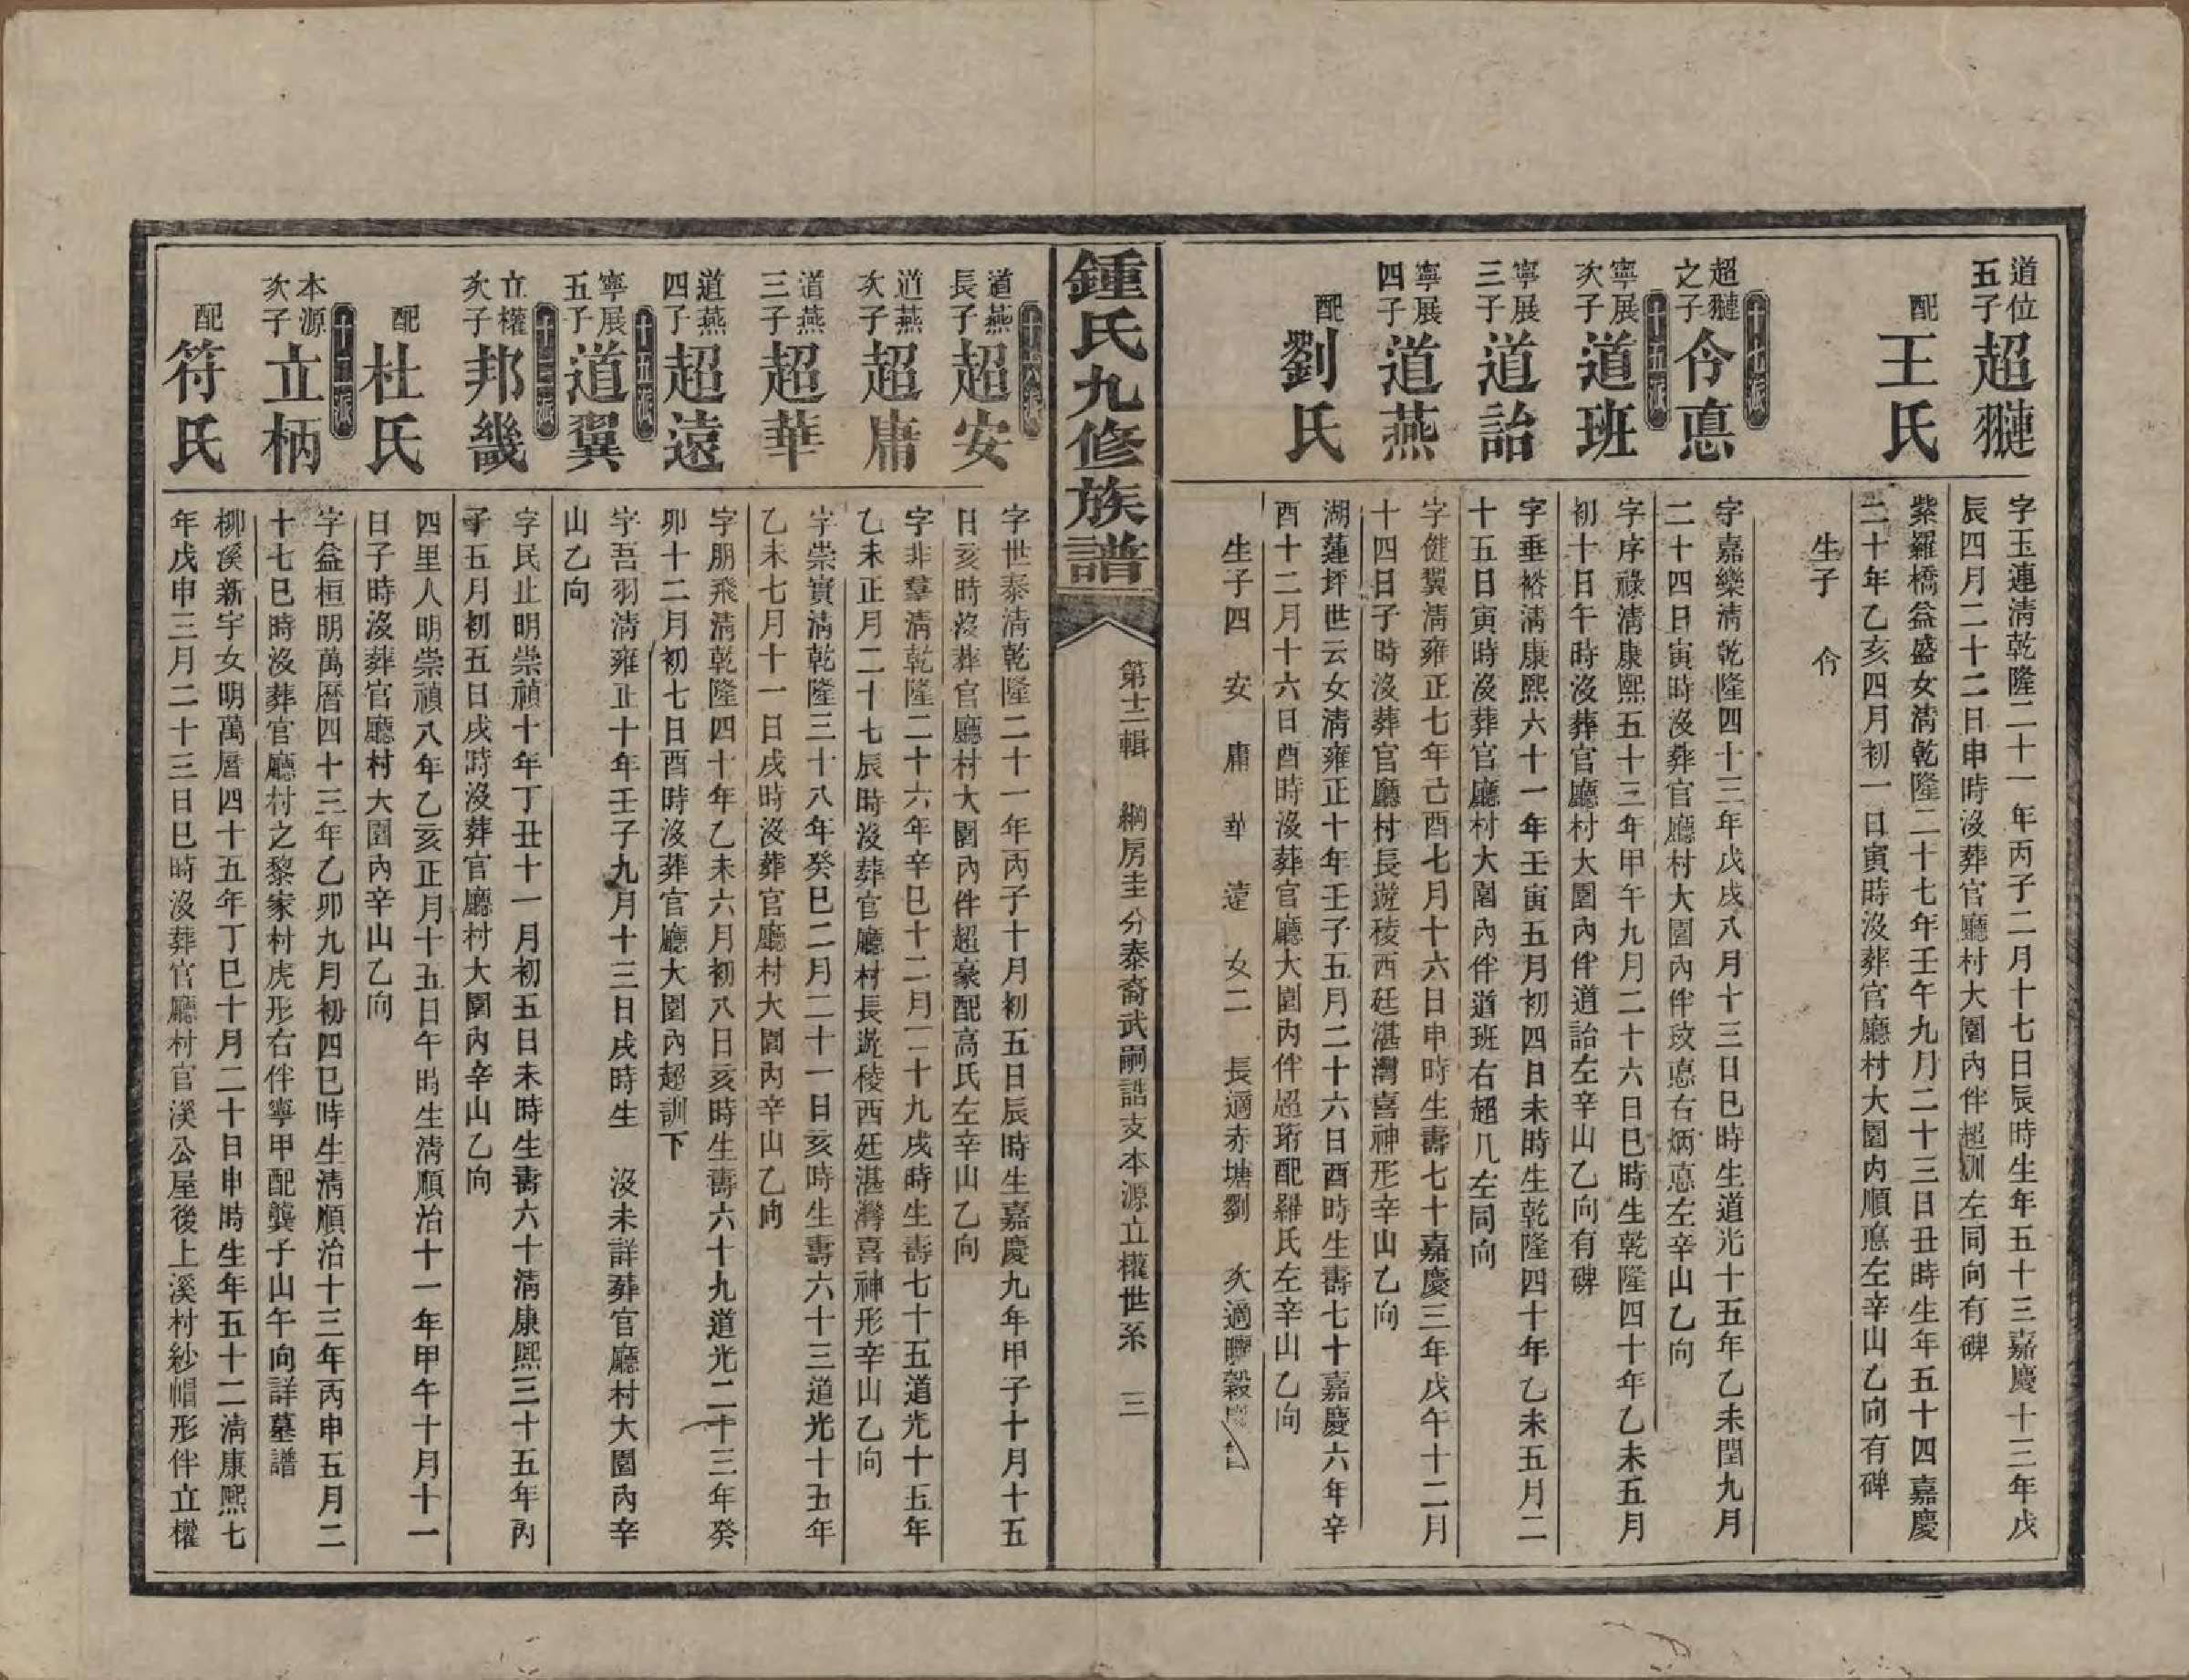 道位
五子
超翴
字玉連清乾隆二十一年丙子二月十七日辰時生年五十三嘉慶十三年戊
辰四月二十二日申時沒葬官廳村大園內伴超訓左同向有碑
配
王氏
紫羅橋益盛女清乾隆二十七年壬午九月二十三日丑時生年五十四嘉慶
二十年乙亥四月初一日寅時沒葬官廳村大園內順悳左辛山乙向有碑
生子 令
十七派
超翴
之子
令悳
字嘉樂清乾隆四十三年戊戌八月十三日巳時生道光十五年乙未閏九月
二十四日寅時沒葬官廳村大園內伴玫悳右炳悳左辛山乙向
十五派
寧展
次子
道班
字序祿清康熙五十三年甲午九月二十六日巳時生乾隆四十年乙未五月
初十日午時沒葬官廳村大園內伴道詒左辛山乙向有碑
寧展
三子
道詒
字垂裕清康熙六十一年壬寅五月初四日未時生乾隆四十年乙未五月二
十五日寅時沒葬官廳村大園內伴道班右超几左同向
寧展
四子
道燕
字健翼清雍正七年己酉七月十六日申時生壽七十嘉慶三年戊午十二月
十四日子時沒葬官廳村長遊稜西廷湛灣喜神形辛山乙向
配
劉氏
湖蓮坪世云女清雍正十年壬子五月二十六日酉時生壽七十嘉慶六年辛
酉十二月十六日酉時沒葬官廳大園內伴超珩配羅氏左辛山乙向
生子四 安 庸 華 遠 女二 長適赤塘劉 次適
鍾氏九修族譜
第十二輯 綱房圭分泰裔武嗣誥支本源立權世系 三
十六派
道燕
長子
超安
字世泰清乾隆二十一年丙子十月初五日辰時生嘉慶九年甲子十月十五
日亥時沒葬官廳村大園內伴超豪配高氏左辛山乙向
道燕
次子
超庸
字非羣清乾隆二十六年辛巳十二月二十九戌時生壽七十五道光十五年
乙未正月二十七辰時沒葬官廳村長遊稜西廷湛灣喜神形辛山乙向
道燕
三子
超華
字崇實清乾隆三十八年癸巳二月二十一日亥時生壽六十三道光十五年
乙未七月十一日戌時沒葬官廳村大園內辛山乙向
道燕
四子
超遠
字朋飛清乾隆四十年乙未六月初八日亥時生壽六十九道光二十三年癸
卯十二月初七日酉時沒葬官廳大園內超訓下
十五派
寧展
五子
道翼
字吾羽清雍正十年壬子九月十三日戌時生 沒未詳葬官廳村大園內辛
山乙向
十三派
立權
次子
邦畿
字民止明崇禎十年丁丑十一月初五日未時生壽六十清康熙三十五年丙
子五月初五日戌時沒葬官廳村大園內辛山乙向
配
杜氏
四里人明崇禎八年乙亥正月十五日午時生清順治十一年甲午十月十一
日子時沒葬官廳村大園內辛山乙向
十二派
本源
次子
立柄
字益桓明萬曆四十三年乙卯九月初四巳時生清順治十三年丙申五月二
十七巳時沒葬官廳村之黎家村虎形右伴寧甲配龔子山午向詳墓譜
配
符氏
柳溪新宇女明萬曆四十五年丁巳十月二十日申時生年五十二清康熙七
年戊申三月二十三日巳時沒葬官廳村官溪公屋後上溪村紗帽形伴立權